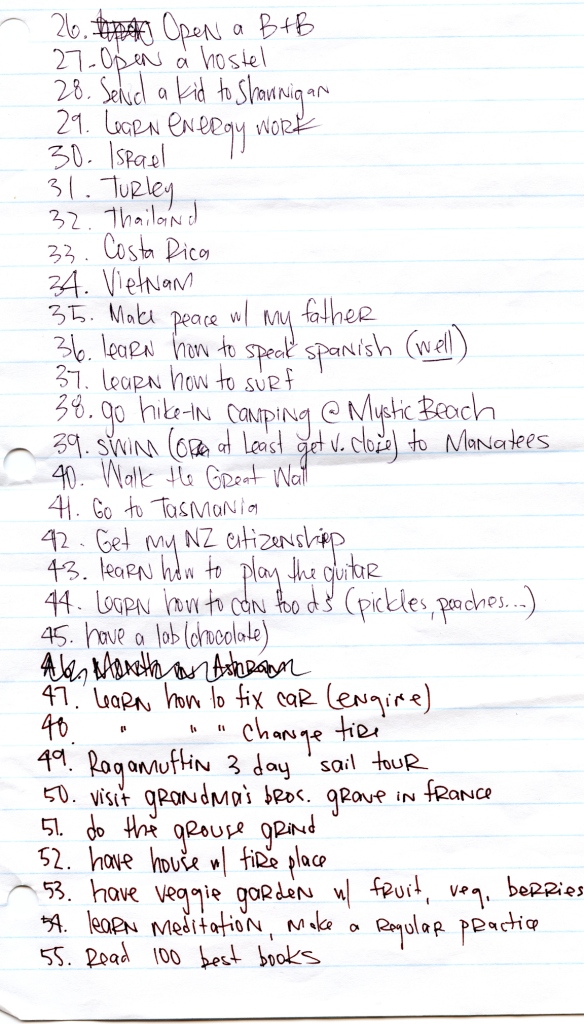 26. Open a B+B
27. Open a hostel
28. Send a kid to Shawnigan
29. learn energy work
30. Israel
31. Turkey
32. Thailand
33. Costa Rica
34. Vietnam
35. Make peace w/ my father
36. learn how to speak spanish (well)
37. learn how to surf
38. go hike-in camping @ Mystic Beach
39. swim (or at least get v. close) to Manatees
40. Walk the Great Wall
41. Go to Tasmania
42. Get my NZ citizenship
43. learn how to play the guitar
44. learn how to can foods (pickles, peaches...)
45. have a lab (chocolate)
46. Month in Ashram
47. learn how to fix car (engine)
48. " " " change tire
49. Ragamuffin 3 day sail tour
50. visit grandma's bros. grave in france
51. do the grouse grind
52. have house w/ fire place
53. have veggie garden w/ fruit, veg, berries
54. learn meditation, make a regular practice
55. Read 100 best books